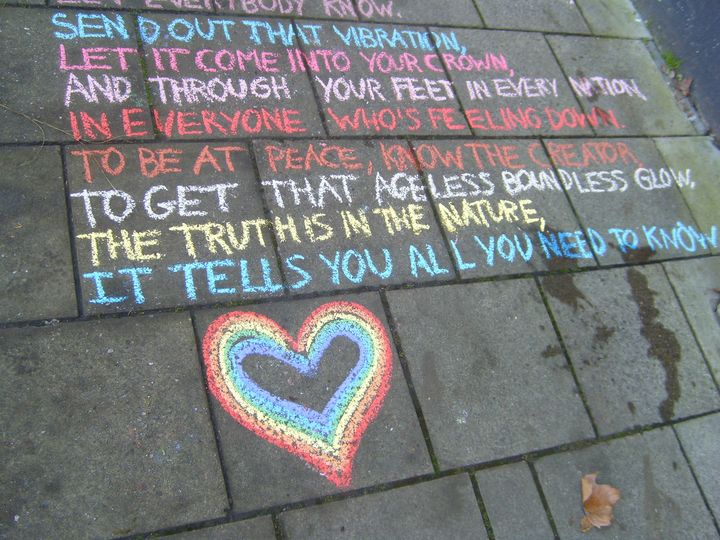 LET EVERYBODY KNOW.
SEND OUT THAT VIBRATION,
LET IT COME INTO YOUR CROWN,
AND THROUGH YOUR FEET IN EVERY NATION.
IN EVERYONE WHO'S FEELING DOWN.
TO BE AT PEACE, KNOW THE CREATOR
TO GET THAT AGELESS BOUNDLESS GLOW,
THE TRUTH IS IN THE NATURE,
IT TELLS YOU ALL YOU NEED TO KNOW